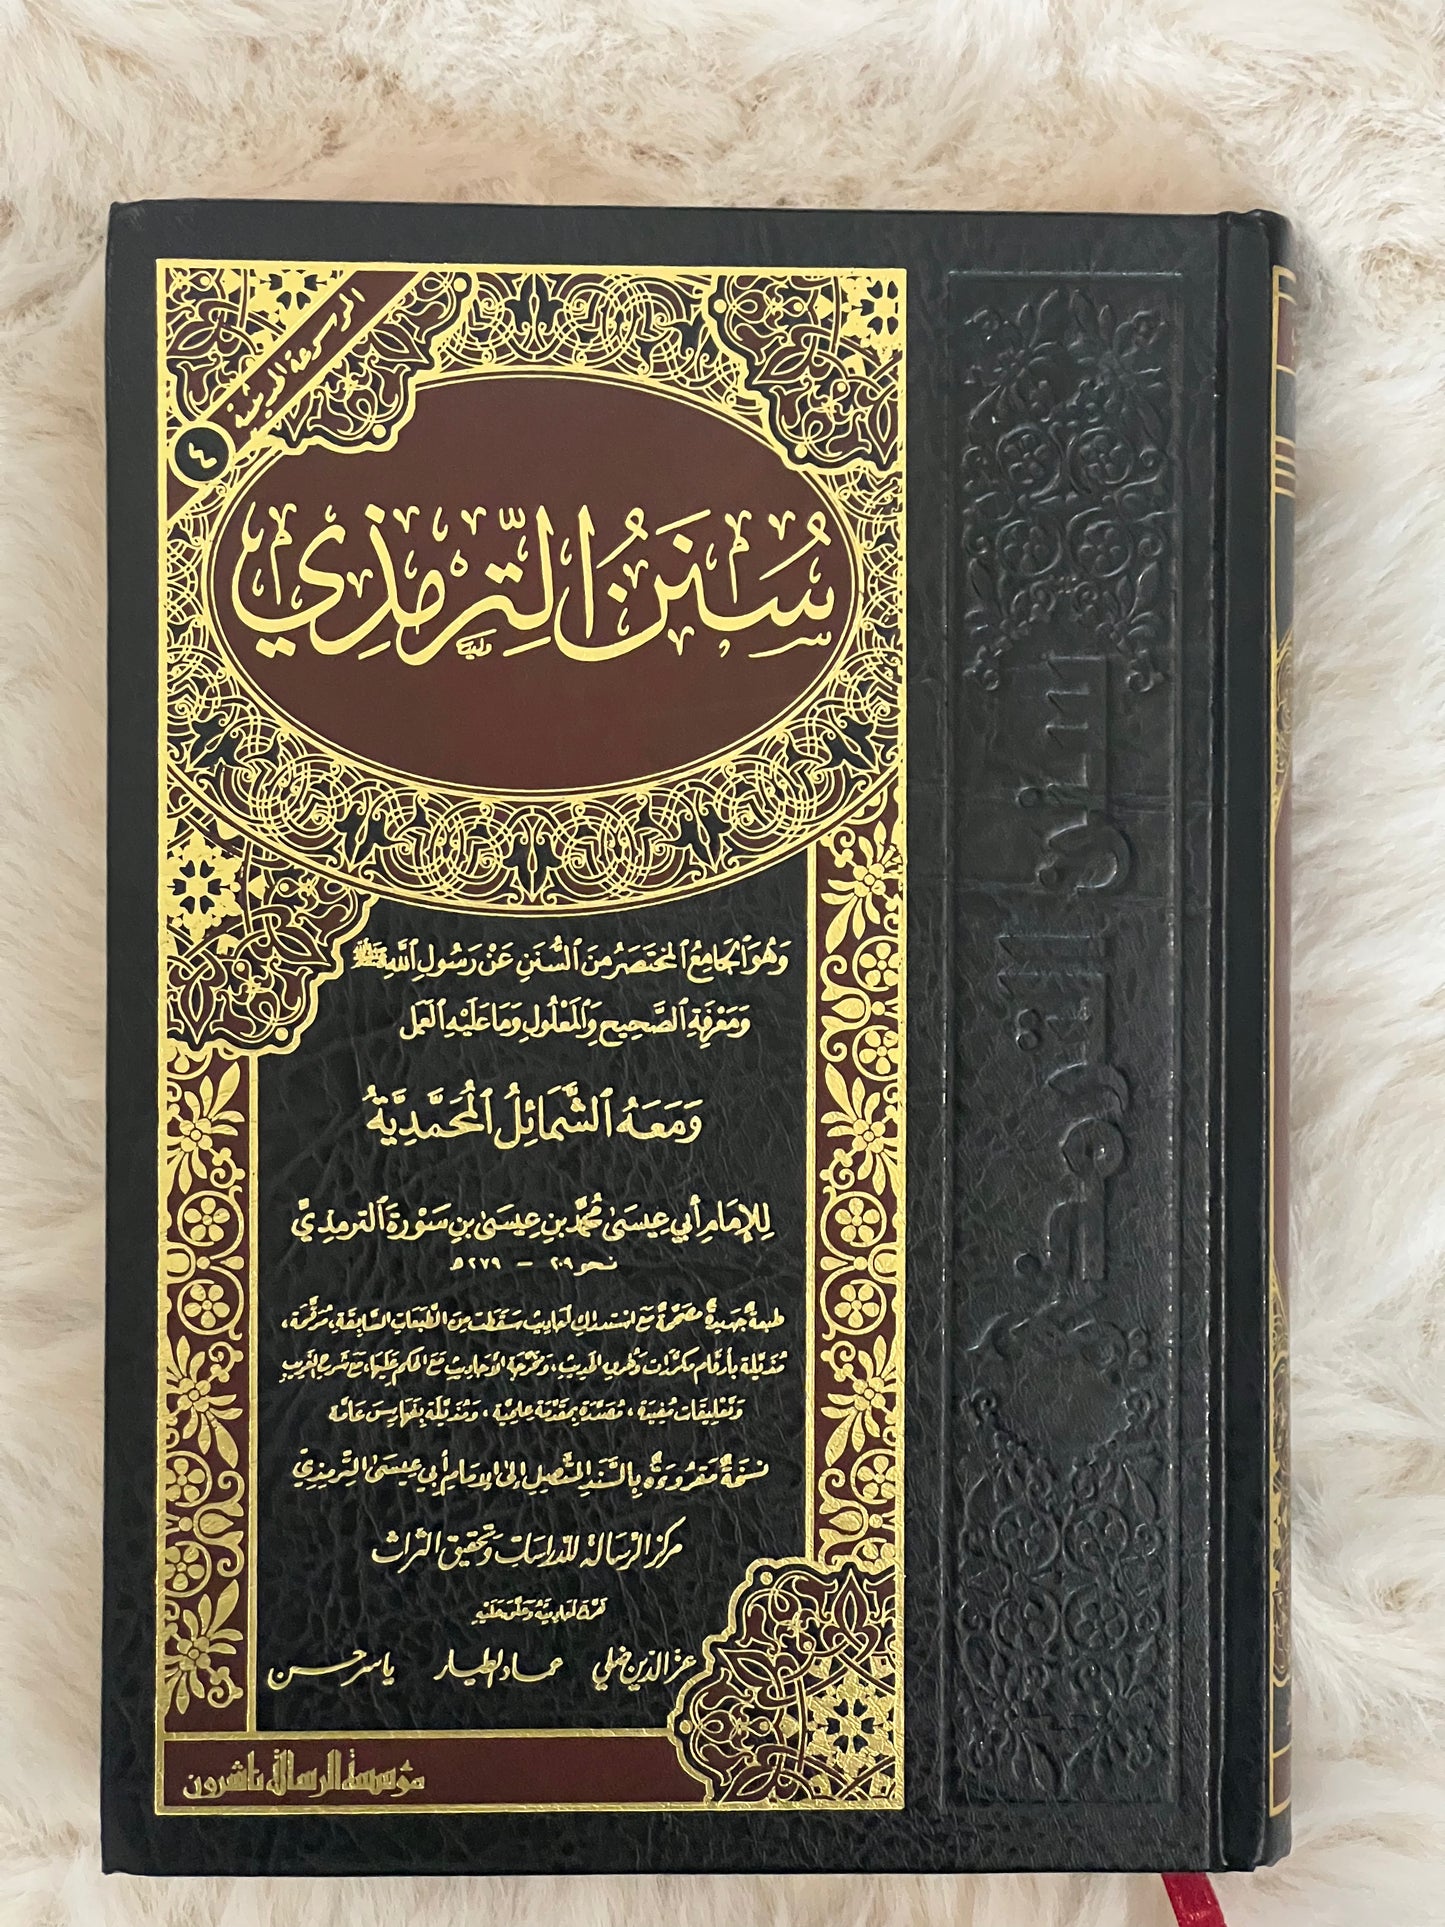 الموسوعة الحديثية
٤
سُنَنُ التِّرمِذِي
وَهُوَ الجَامِعُ المُختَصَرُ مِنَ السُّنَنِ عَنْ رَسُولِ اللَّهِ ﷺ
وَمَعْرِفَةِ الصَّحِيحِ وَالمَعْلُولِ وَمَا عَلَيْهِ العَمَل
وَمَعَهُ الشَّمَائِلُ المُحَمَّدِيَّةُ
لِلإِمَامِ أَبِي عِيسَىٰ مُحَمَّد بنِ عِيسَىٰ بنِ سَوْرَةَ التِّرمِذِيِّ
نحو ٢٠٩ - ٢٧٩ ه
طبعةٌ جديدةٌ مصحَّحةٌ مع استدراك أحاديث سَقَطَت مِنَ الطَّبَعَاتِ السَّابِقَة، مُرَقَّمَة،
مُذَيَّلة بأرقام مكرَّرات وطرف الحديث، ومُخرَّجة الأحاديث مَعَ الحكم عَلَيها، مَعَ شَرح الغَريبِ
وَتَعليقَات مُفيدة، مُصَدَّرة بمقدّمة علميَّة، ومُذيَّلَة بفَهَارِسَ عَامَّة
نسخةٌ مَقروءَةٌ بِالسَّنَدِ المتَّصِلِ إلى الإمَامِ أبي عيسَى التِّرمِذِيّ
مركز الرّسَالة للدّراسَات وتحقيق التّراث
خرّج أحاديثه وعلّق عليه
عزّ الدّين ضلي عماد الطيار ياسر حسن
مؤسسة الرسالة ناشرون
سنن الترمذي